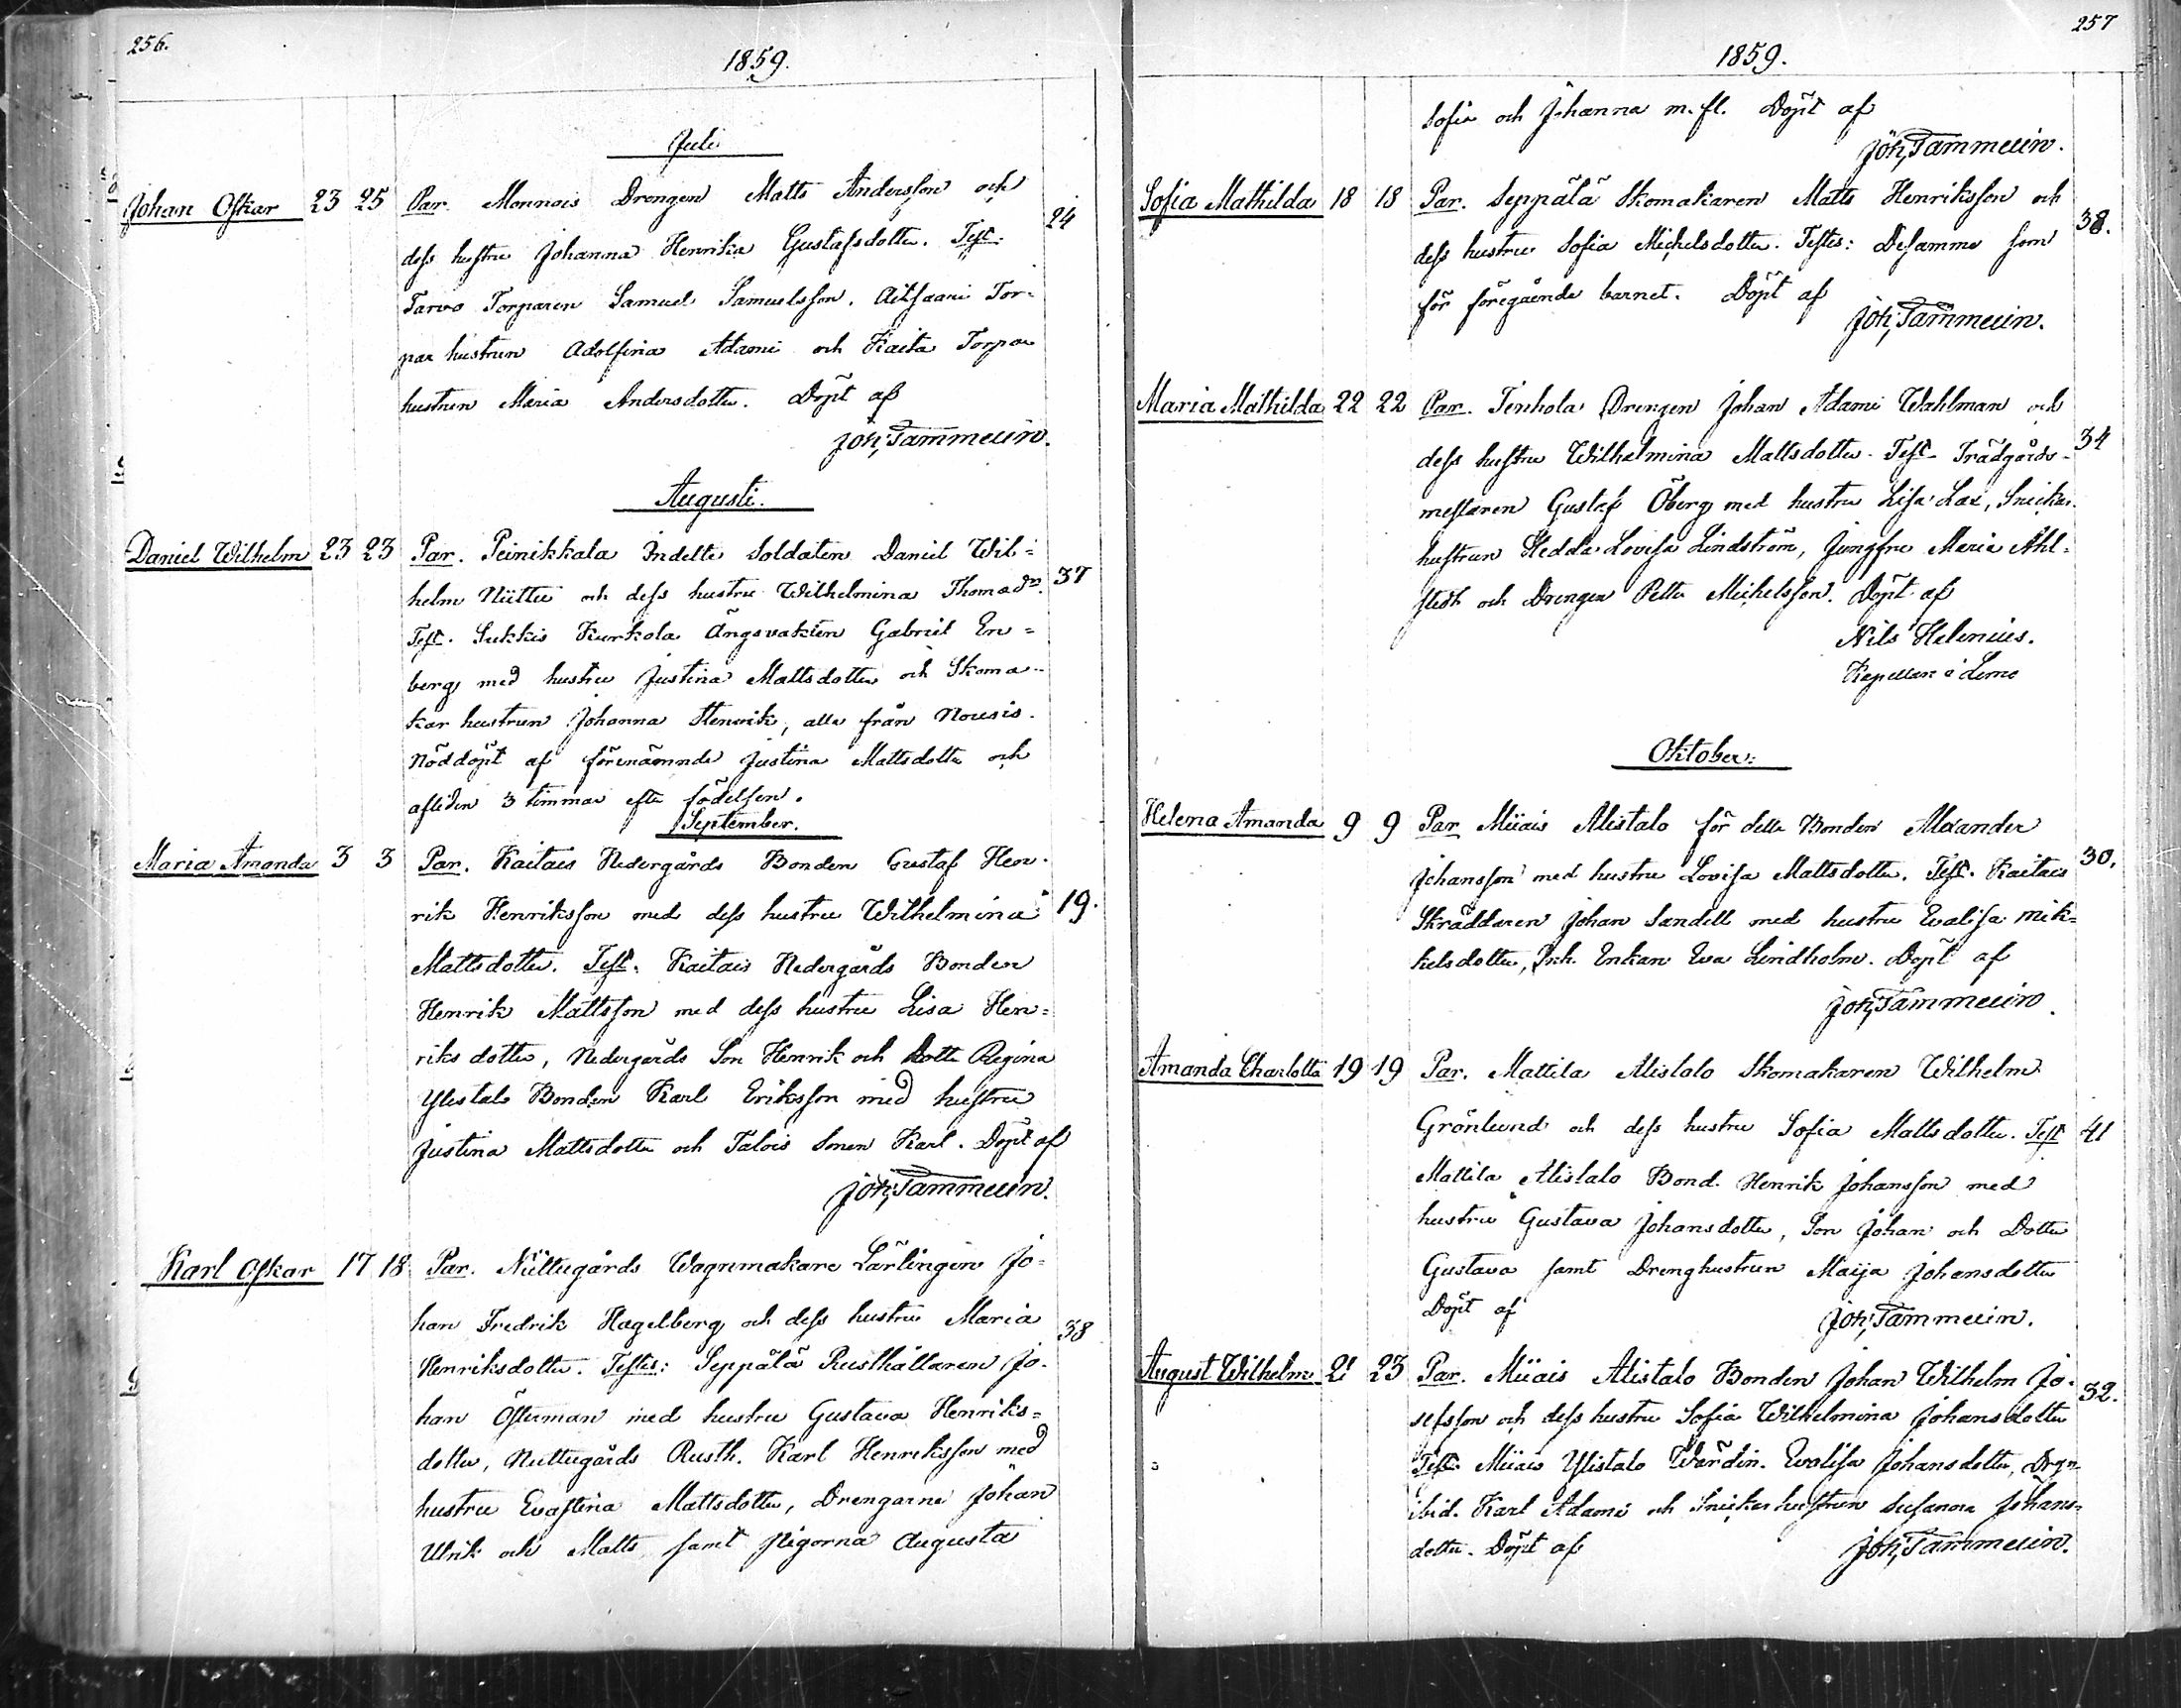 256.
1859.
Juli
Johan Oskar 23 25 Par. Monnois Drengen Matts Andersson och
dess hustru Johanna Henrika Gustafsdotter. Test. 24
Tarvo Torparen Samuel Samuelsson. Aitsaari Tor-
par hustrun Adolfina Adami och Kaita Torpar
hustrun Maria Andersdotter. Döpt af
Joh, Tammelin.
Augusti.
Daniel Wilhelm 23 23 Par. Peinikkala Indelte Soldaten Daniel Wil=
helm Niittu och dess hustru Wilhelmina Thomadr. 37
Test. Sukkis Kurkola Ängsvakten Gabriel En=
berg med hustru Justina Mattsdotter och Skoma-
kar hustrun Johanna Henrik, alla från Nousis.
Nöddöpt af förenämnde Justina Mattsdotter och
afliden 3 timmar efter födelsen.
September.
Maria Amanda 3 3 Par. Kaitais Nedergårds Bonden Gustaf Hen-
rik Henriksson med dess hustru Wilhelmina 19.
Mattsdotter. Test. Kaitais Nedergårds Bonden
Henrik Mattsson med dess hustru Lisa Hen=
riks dotter, Nedergårds Son Henrik och Dotter Regina
Ylistalo Bonden Karl Eriksson med hustru
Justina Mattsdotter och Talois Sonen Karl. Döpt af
Joh, Tammelin.
Karl Oskar 17 18 Par. Niittugårds Wagnmakare Lärlingen Jo=
han Fredrik Hagelberg och dess hustru Maria 38
Henriksdotter. Testes: Seppälä Rusthållaren Jo-
han Österman med hustru Gustava Henriks=
dotter, Niittugårds Rusth. Karl Henriksson med
hustru Evastina Mattsdotter, Drengarne Johan
Ulrik och Matts samt Pigorna Augusta
257
1859.
Sofia och Johanna m. fl. Döpt af
Joh, Tammelin.
Sofia Mathilda 18 18 Par. Seppälä Skomakaren Matts Henriksson och
dess hustru Sofia Michelsdotter. Testes: Desamme som 38.
för föregående barnet. Döpt af
Joh, Tammelin.
Maria Mathilda 22 22 Par. Tenhola Drengen Johan Adami Wahlman och
dess hustru Wilhelmina Mattsdotter. Test. Trädgårds- 34
mestaren Gustaf Öberg med hustru Lisa Lax, Snickar
hustrun Hedda Lovisa Lindström, Jungfru Maria Ahl=
stedt och Drengen Petter Michelsson. Döpt af
Nils Helenius.
Kapellan i Lemo
Oktober:
Helena Amanda 9 9 Par Miiais Alistalo för detta Bonden Alexander
Johansson med hustru Lovisa Mattsdotter. Test. Kaitais 30.
Skräddaren Johan Sandell med hustru Evalisa Mik=
kelsdotter, Inh. Enkan Eva Lindholm. Döpt af
Joh, Tammelin.
Amanda Charlotta 19 19 Par. Mattila Alistalo Skomakaren Wilhelm
Grönlund och dess hustru Sofia Mattsdotter. Test 41
Mattila Alistalo Bond. Henrik Johansson med
hustru Gustava Johansdotter, Son Johan och Dotter
Gustava samt Drenghustrun Maija Johansdotter
Döpt af Joh, Tammelin.
August Wilhelm 21 23 Par. Miiais Alistalo Bonden Johan Wilhelm Jo-
sefsson och dess hustru Sofia Wilhelmina Johansdotter 32.
Test. Miiais Ylistalo Wärdin. Evalisa Johansdotter, Drgn
ibid. Karl Adami och Snickarhustrun Susanna Johans=
dotter. Döpt af Joh, Tammelin.